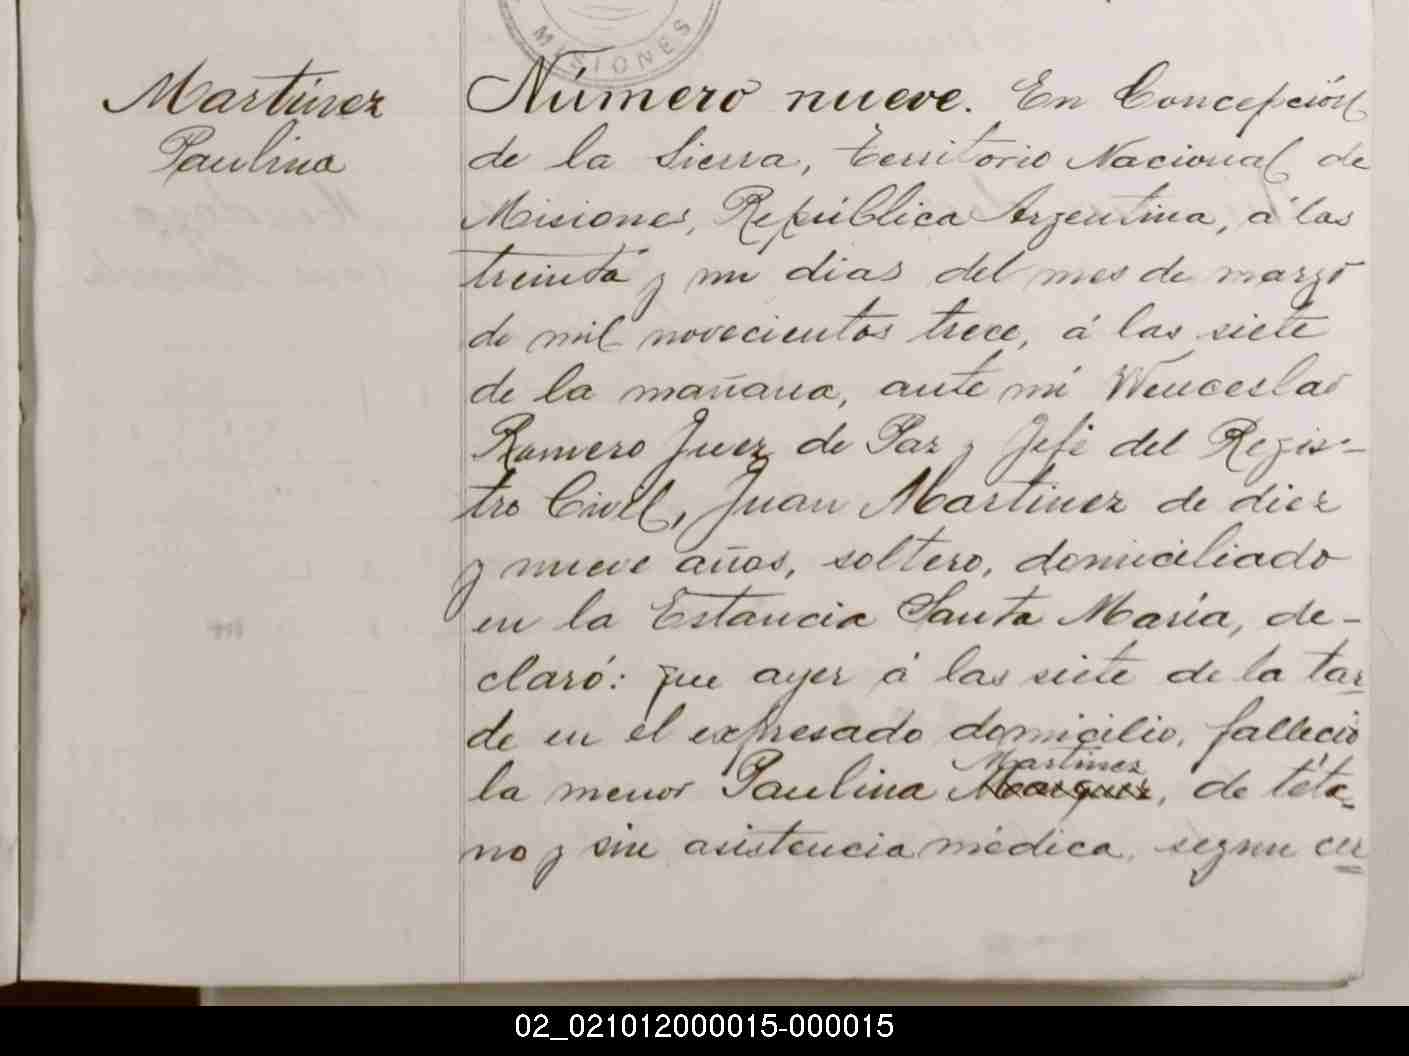 MISIONES
Martínez
Paulina
Número nueve. En Concepción
de la Sierra, territorio Nacional de
Misiones, República Argentina, á las
treinta y un dias del mes de marzo
de mil novecientos trece, á las siete
de la mañana, ante mi Wenceslao
Romero Juez de Paz y Jefe del Regis-
tro Civil, Juan Martinez de diez
y nueve años, soltero, domiciliado
en la Estancia Santa María, de-
claró: que ayer á las siete de la tar
de en el expresado domicilio, falleció
Martinez
la menor Paulina Marquez, de téta-
no y sin asistencia médica, segun cer
02_021012000015-000015